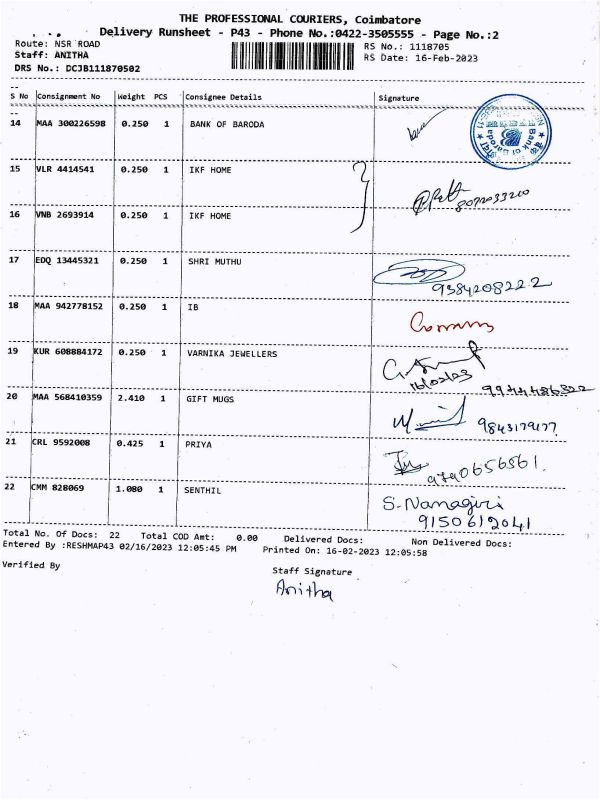 THE PROFESSIONAL COURIERS, Coimbatore
Delivery Runsheet - P43 - Phone No.:0422-3505555 - Page No.:2
Route: NSR ROAD
RS No.: 1118705
Staff: ANITHA
RS Date: 16-Feb-2023
DRS No.: DCJB111870502
S No Consignment No Weight PCS Consignee Details Signature
14 MAA 300226598 0.250 1 BANK OF BARODA
Bank of Baroda
15 VLR 4414541 0.250 1 IKF HOME
16 VNB 2693914 0.250 1 IKF HOME
17 EDQ 13445321 0.250 1 SHRI MUTHU
9384208222
18 MAA 942778152 0.250 1 IB
19 KUR 608884172 0.250 1 VARNIKA JEWELLERS
16/02/23
9944486322
20 MAA 568410359 2.410 1 GIFT MUGS
9843179177
21 CRL 9592008 0.425 1 PRIYA
9790656561.
22 CMM 828069 1.080 1 SENTHIL
S. Nanagiri
9150612041
Total No. Of Docs: 22 Total COD Amt: 0.00 Delivered Docs: Non Delivered Docs:
Entered By :RESHMAP43 02/16/2023 12:05:45 PM Printed On: 16-02-2023 12:05:58
Verified By
Staff Signature
Anitha